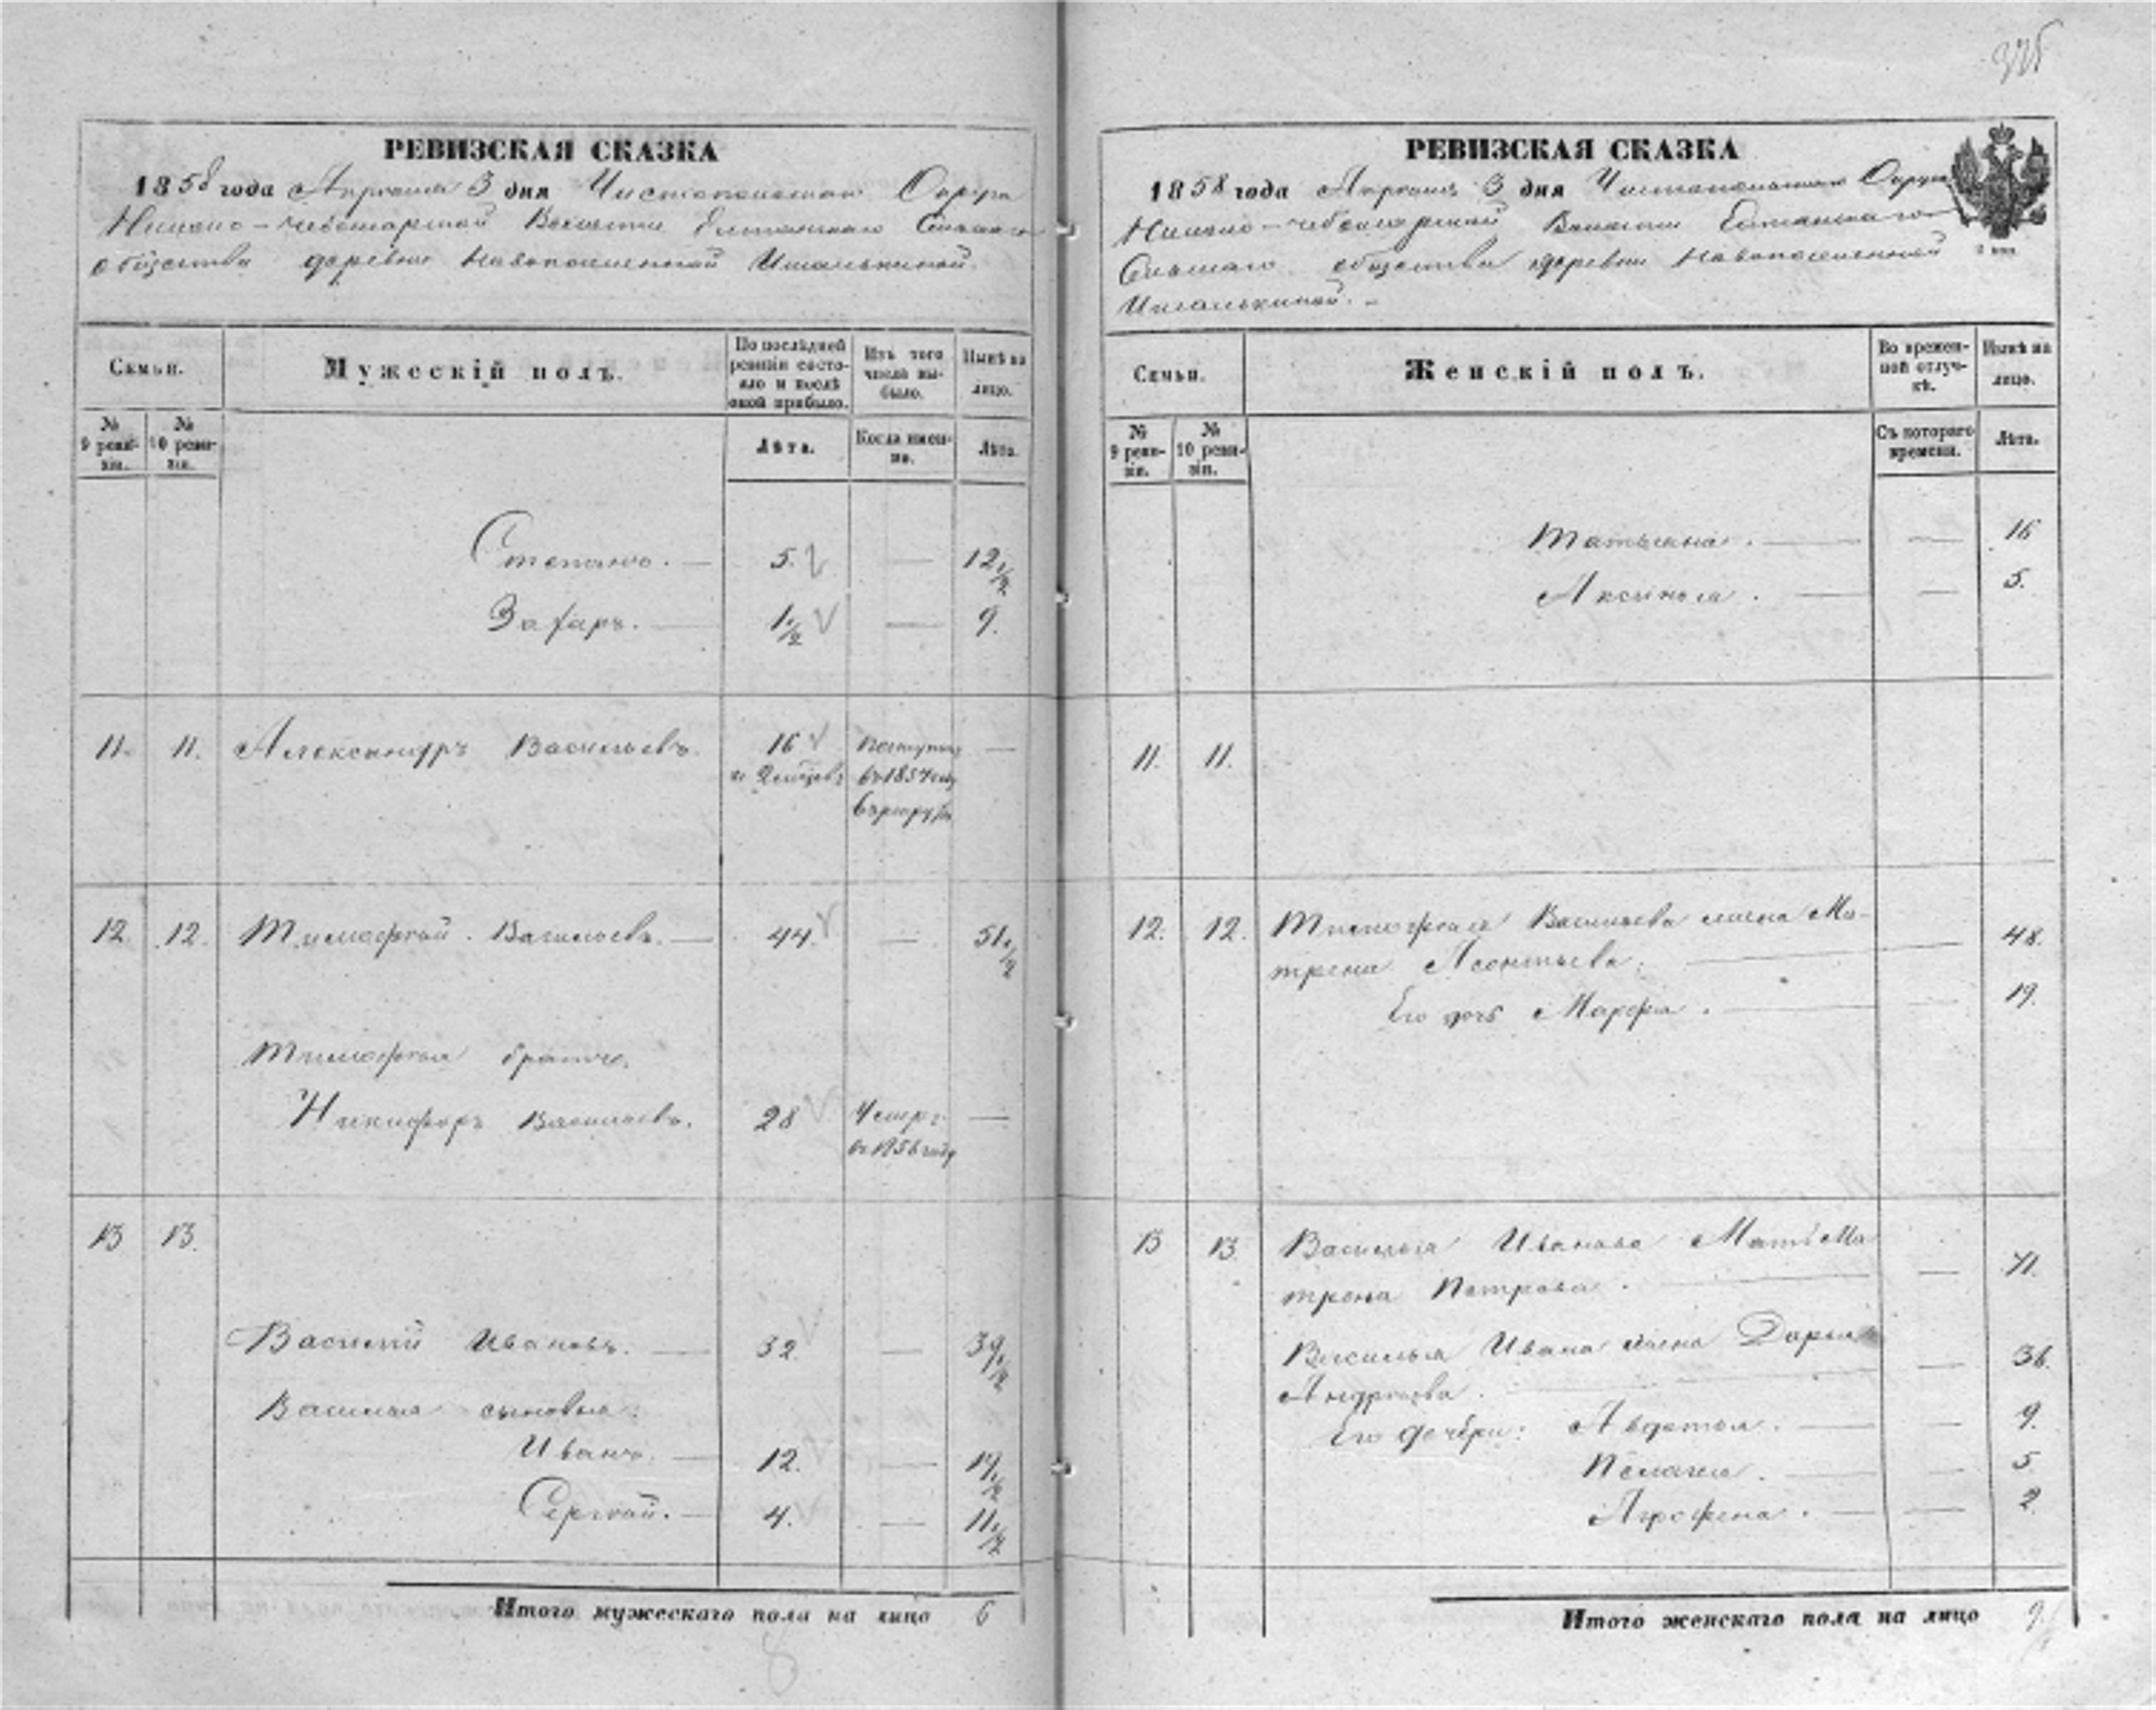 РЕВИЗСКАЯ СКАЗКА
1858 года Апреля 3 дня Чистопольскаго Округа
волости Сельскаго
общества деревни Новопоселенной Ишалькиной.
Семьи.
Мужескій полъ.
По послѣдней ревизіи состояло и послѣ оной прибыло.
Изъ того числа выбыло.
Нынѣ на лицо.
№ 9 ревизіи.
№ 10 ревизіи.
Лѣта.
Когда именно.
Лѣта.
Степанъ. — 5. — 12 1/2
Захаръ. — 1 1/2 — 9.
11. 11. Александръ Васильевъ. 16 —
въ 1854 году
въ рекруты
12. 12. Тимофѣй Васильевъ. — 44. — 51 1/2
Тимофѣя братъ.
Никифоръ Васильевъ. 28 Умеръ —
въ 1856 году
13 13.
Василій Ивановъ. — 32. — 39 1/2
Василья сыновья:
Иванъ. — 12. — 19 1/2
Сергѣй. — 4. — 11 1/2
Итого мужескаго пола на лицо 6
8
РЕВИЗСКАЯ СКАЗКА
1858 года Апреля 3 дня Чистопольскаго Округа
волости
Сельскаго общества деревни Новопоселенной
Ишалькиной. —
Семьи.
Женскій полъ.
Во временной отлучкѣ.
Нынѣ на лицо.
№ 9 ревизіи.
№ 10 ревизіи.
Съ котораго времени.
Лѣта.
Татьяна. — — 16
Аксинья. — — 5.
11. 11.
12. 12. Тимофѣя Васильева жена Ма-
трена Леонтьева. — — 48.
Его дочь Марфа. — — 19.
13 13 Василья Иванова Мать Ма
трена Петрова. — — 71.
Василья Ивана жена Дарья
Андреева. — — 36.
Его дочери: Авдотья. — — 9.
Пелагея. — — 5.
Аграфена. — — 2.
Итого женскаго пола на лицо 9